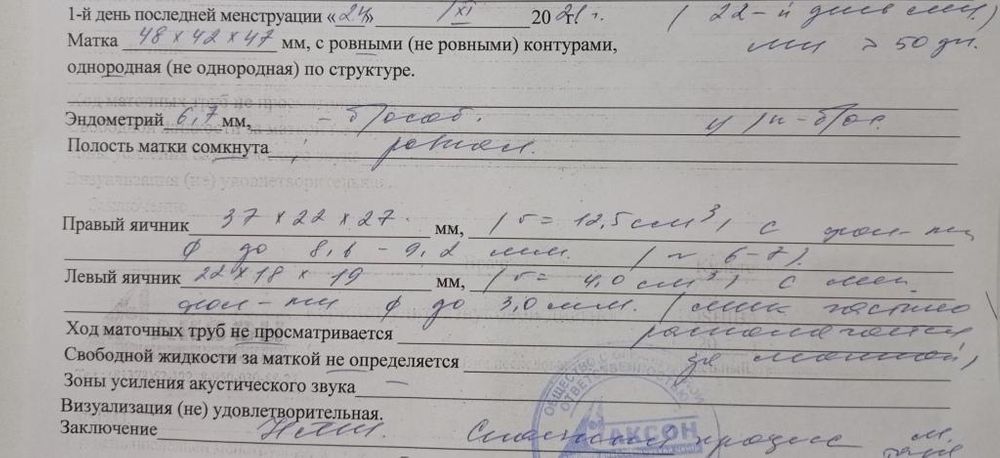 1-й день последней менструации «24» XI 2021 г. (22-й день мц)
Матка 48 х 42 х 47 мм, с ровными (не ровными) контурами, мц > 50 дн.
однородная (не однородная) по структуре.
Эндометрий 6,7 мм, - б/особ. ц/к - б/ос.
Полость матки сомкнута ровная.
Правый яичник 37 х 22 х 27 мм, (V = 12,5 см³) с фол-ми
ф до 8,6 - 9,2 мм. (~ 6-7).
Левый яичник 22 х 18 х 19 мм, (V = 4,0 см³) с
фол-ми ф до 3,0 мм. частично
Ход маточных труб не просматривается располагается
Свободной жидкости за маткой не определяется за маткой)
Зоны усиления акустического звука –
Визуализация (не) удовлетворительная.
Заключение Спаечный процесс м.
АКСОН